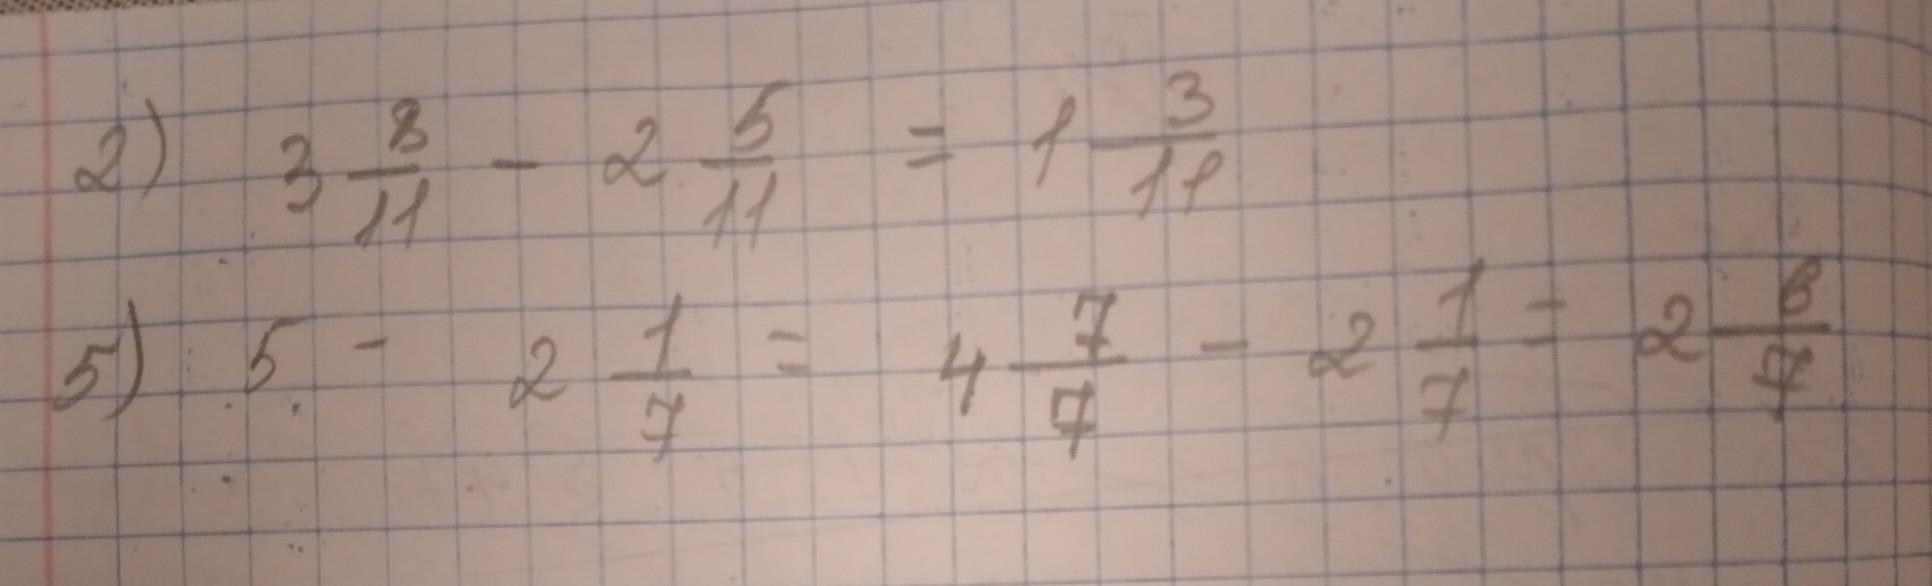 2) 3 8/11 - 2 5/11 = 1 3/11
5) 5 - 2 1/7 = 4 7/7 - 2 1/7 = 2 6/7